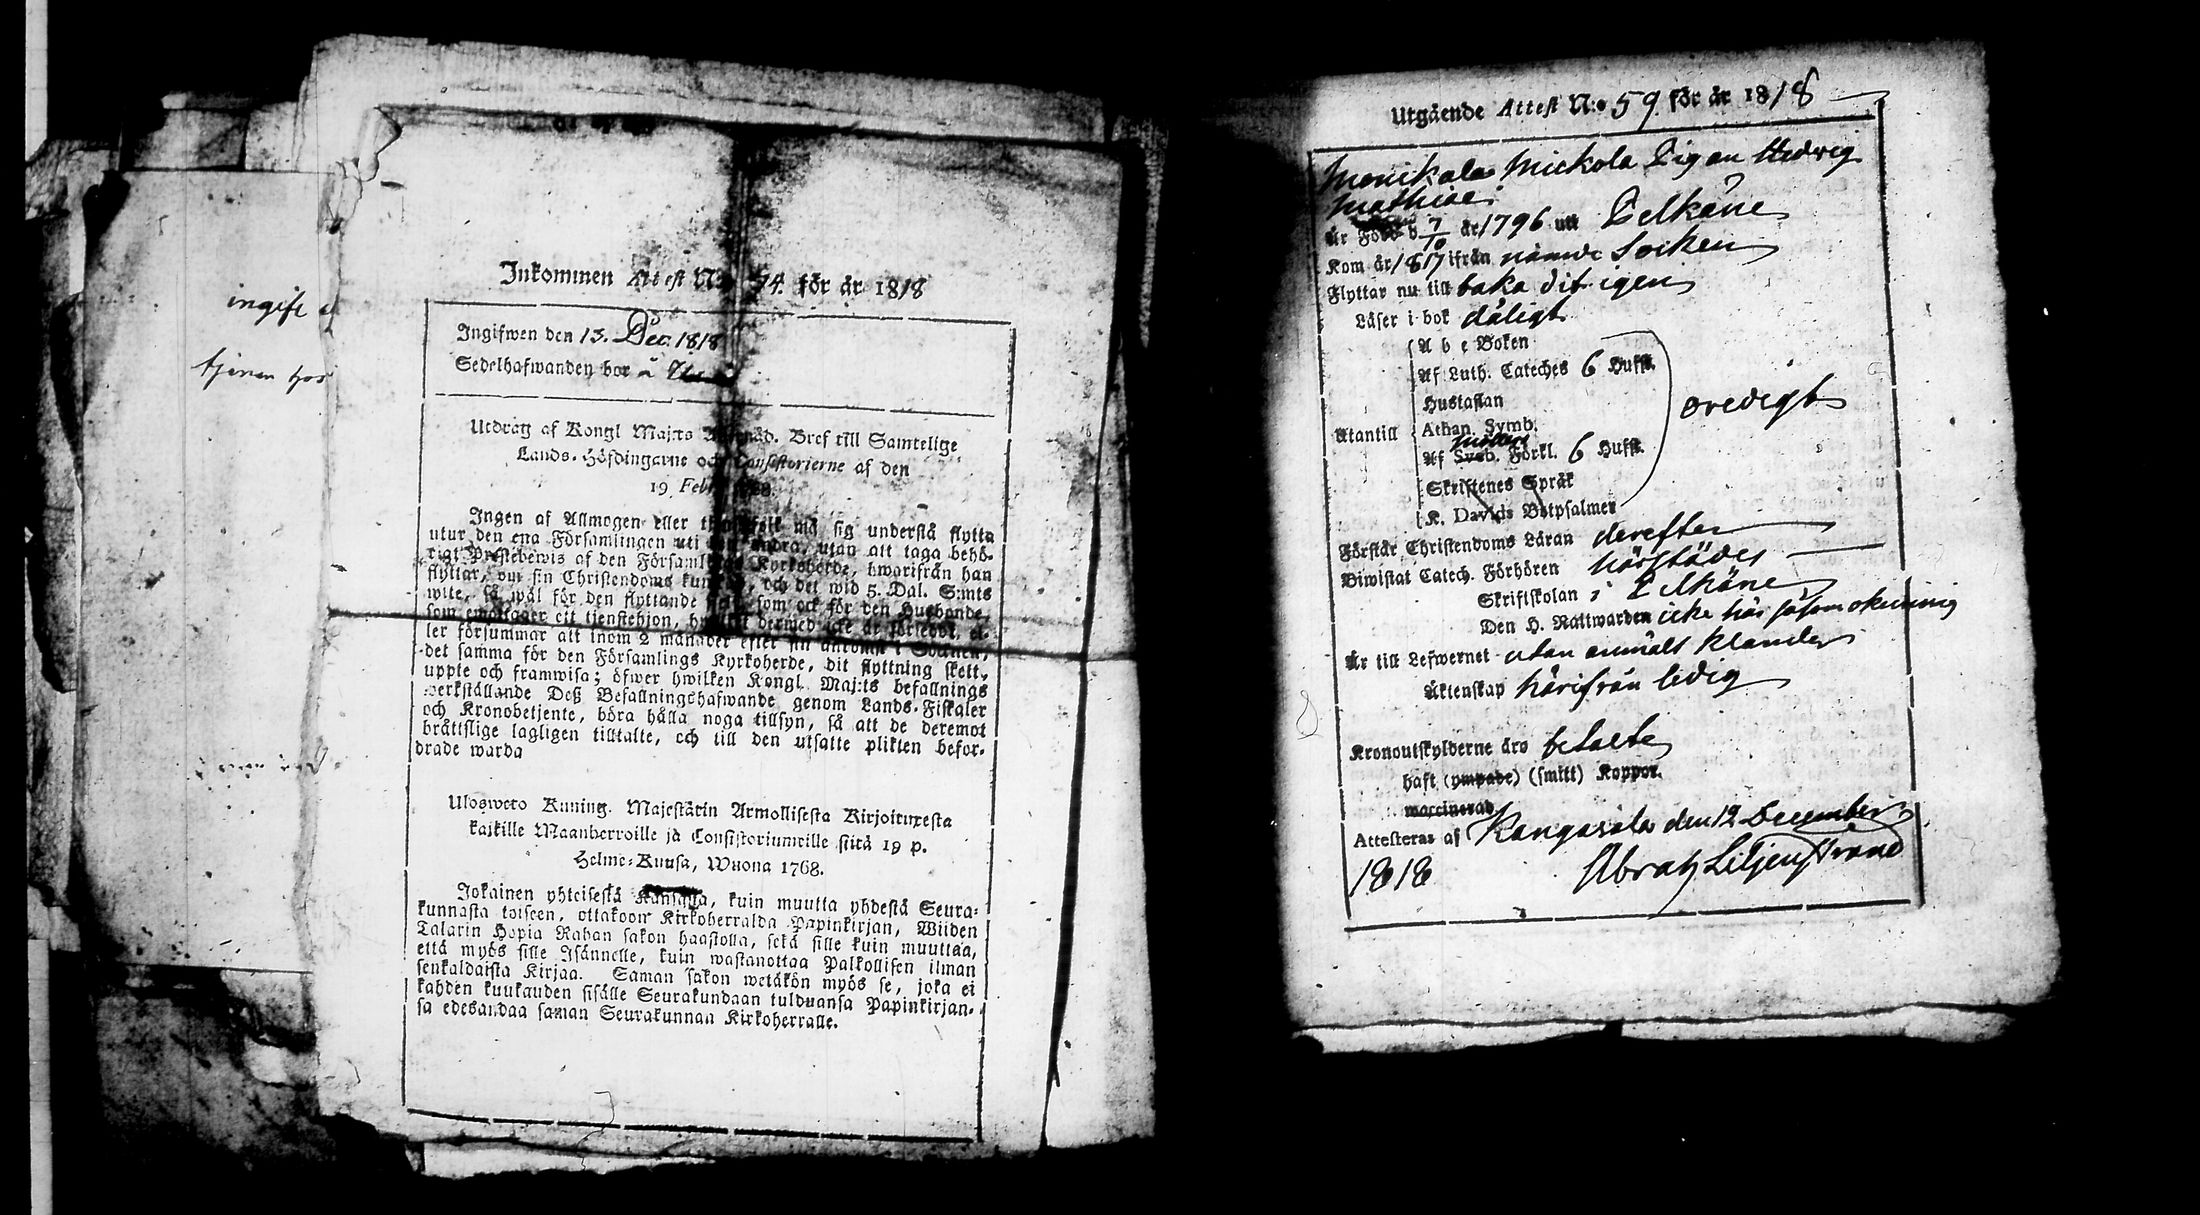 ingift
tjenar hos
Inkommen Attest N:o 54. för år 1818
Ingifwen den 13. Dec. 1818
Sedelhafwanden bor å
Utdrag af Kongl Maj:ts Bref till Samtelige
Lands-Höfdingarne och Consistorierne af den
19 Febr.
Ingen af Allmogen eller må sig understå flytta
utur den ena Församlingen uti den andra, utan att taga behö-
rigt Prestebewis af den Församlings Kyrkoherde, hwarifrån han
flyttar, om sin Christendoms kunskap, och det wid 5. Dal. S:mts
wite, så wäl för den flyttande som ock för den Husbonde,
som emottager ett tjenstehjon, hwilket dermed icke är försedt, el-
ler försummar att inom 2 månader efter sin ankomst i Socknen,
det samma för den Församlings Kyrkoherde, dit flyttning skett,
uppte och framwisa; öfwer hwilken Kongl. Maj:ts befallnings
werkställande Deß Befallningshafwande genom Lands-Fiskaler
och Kronobetjente, böra hålla noga tillsyn, så att de deremot
bråttslige lagligen tilltalte, och till den utsatte plikten befor-
drade warda
Ulosweto Kuning. Majestätin Armollisesta Kirjoituxesta
kaikille Maanherroille ja Consistoriumeille siitä 19 p.
Helme-Kuusa, Wuona 1768.
Jokainen yhteisestä Kansasta, kuin muutta yhdestä Seura-
kunnasta toiseen, ottakoon Kirkoherralda Papinkirjan, Wiiden
Talarin Hopia Rahan sakon haastolla, sekä sille kuin muuttaa,
että myös sille Isännelle, kuin wastanottaa Palkollisen ilman
senkaldaista Kirjaa. Saman sakon wetäkön myös se, joka ei
kahden kuukauden sisälle Seurakundaan tulduansa Papinkirjan-
sa edesandaa saman Seurakunnan Kirkoherralle.
Utgående Attest N:o 59. för år 1818
Monikala Mickola Pigan Hedwig
Mathiae
Är Född d 7/10 år 1796 uti Pelkäne
Kom år 1817 ifrån nämde Socken
Flyttar nu till baka dit igen
Läser i bok dåligt
A b c Boken
Af Luth. Cateches 6 Hufst.
Hustaflan
Utantill Athan. Symb. oredigt
Af Sveb. Förkl. 6 Hufst.
Skriftenes Språk
K. Davids Botpsalmer
Förstår Christendoms Läran derefter
Biwistat Catech. Förhören härstädes
Skriftskolan i Pelkäne
Den H. Nattwarden icke här såsom okunnig
Är till Lefwernet utan anmält klander
Äktenskap härifrån ledig
Kronoutskylderne äro betalte
haft (ympade) (smitt) Koppor.
vaccinerad
Attesteras af Kangasala den 12 December
1818 Abrah Liljenstrand